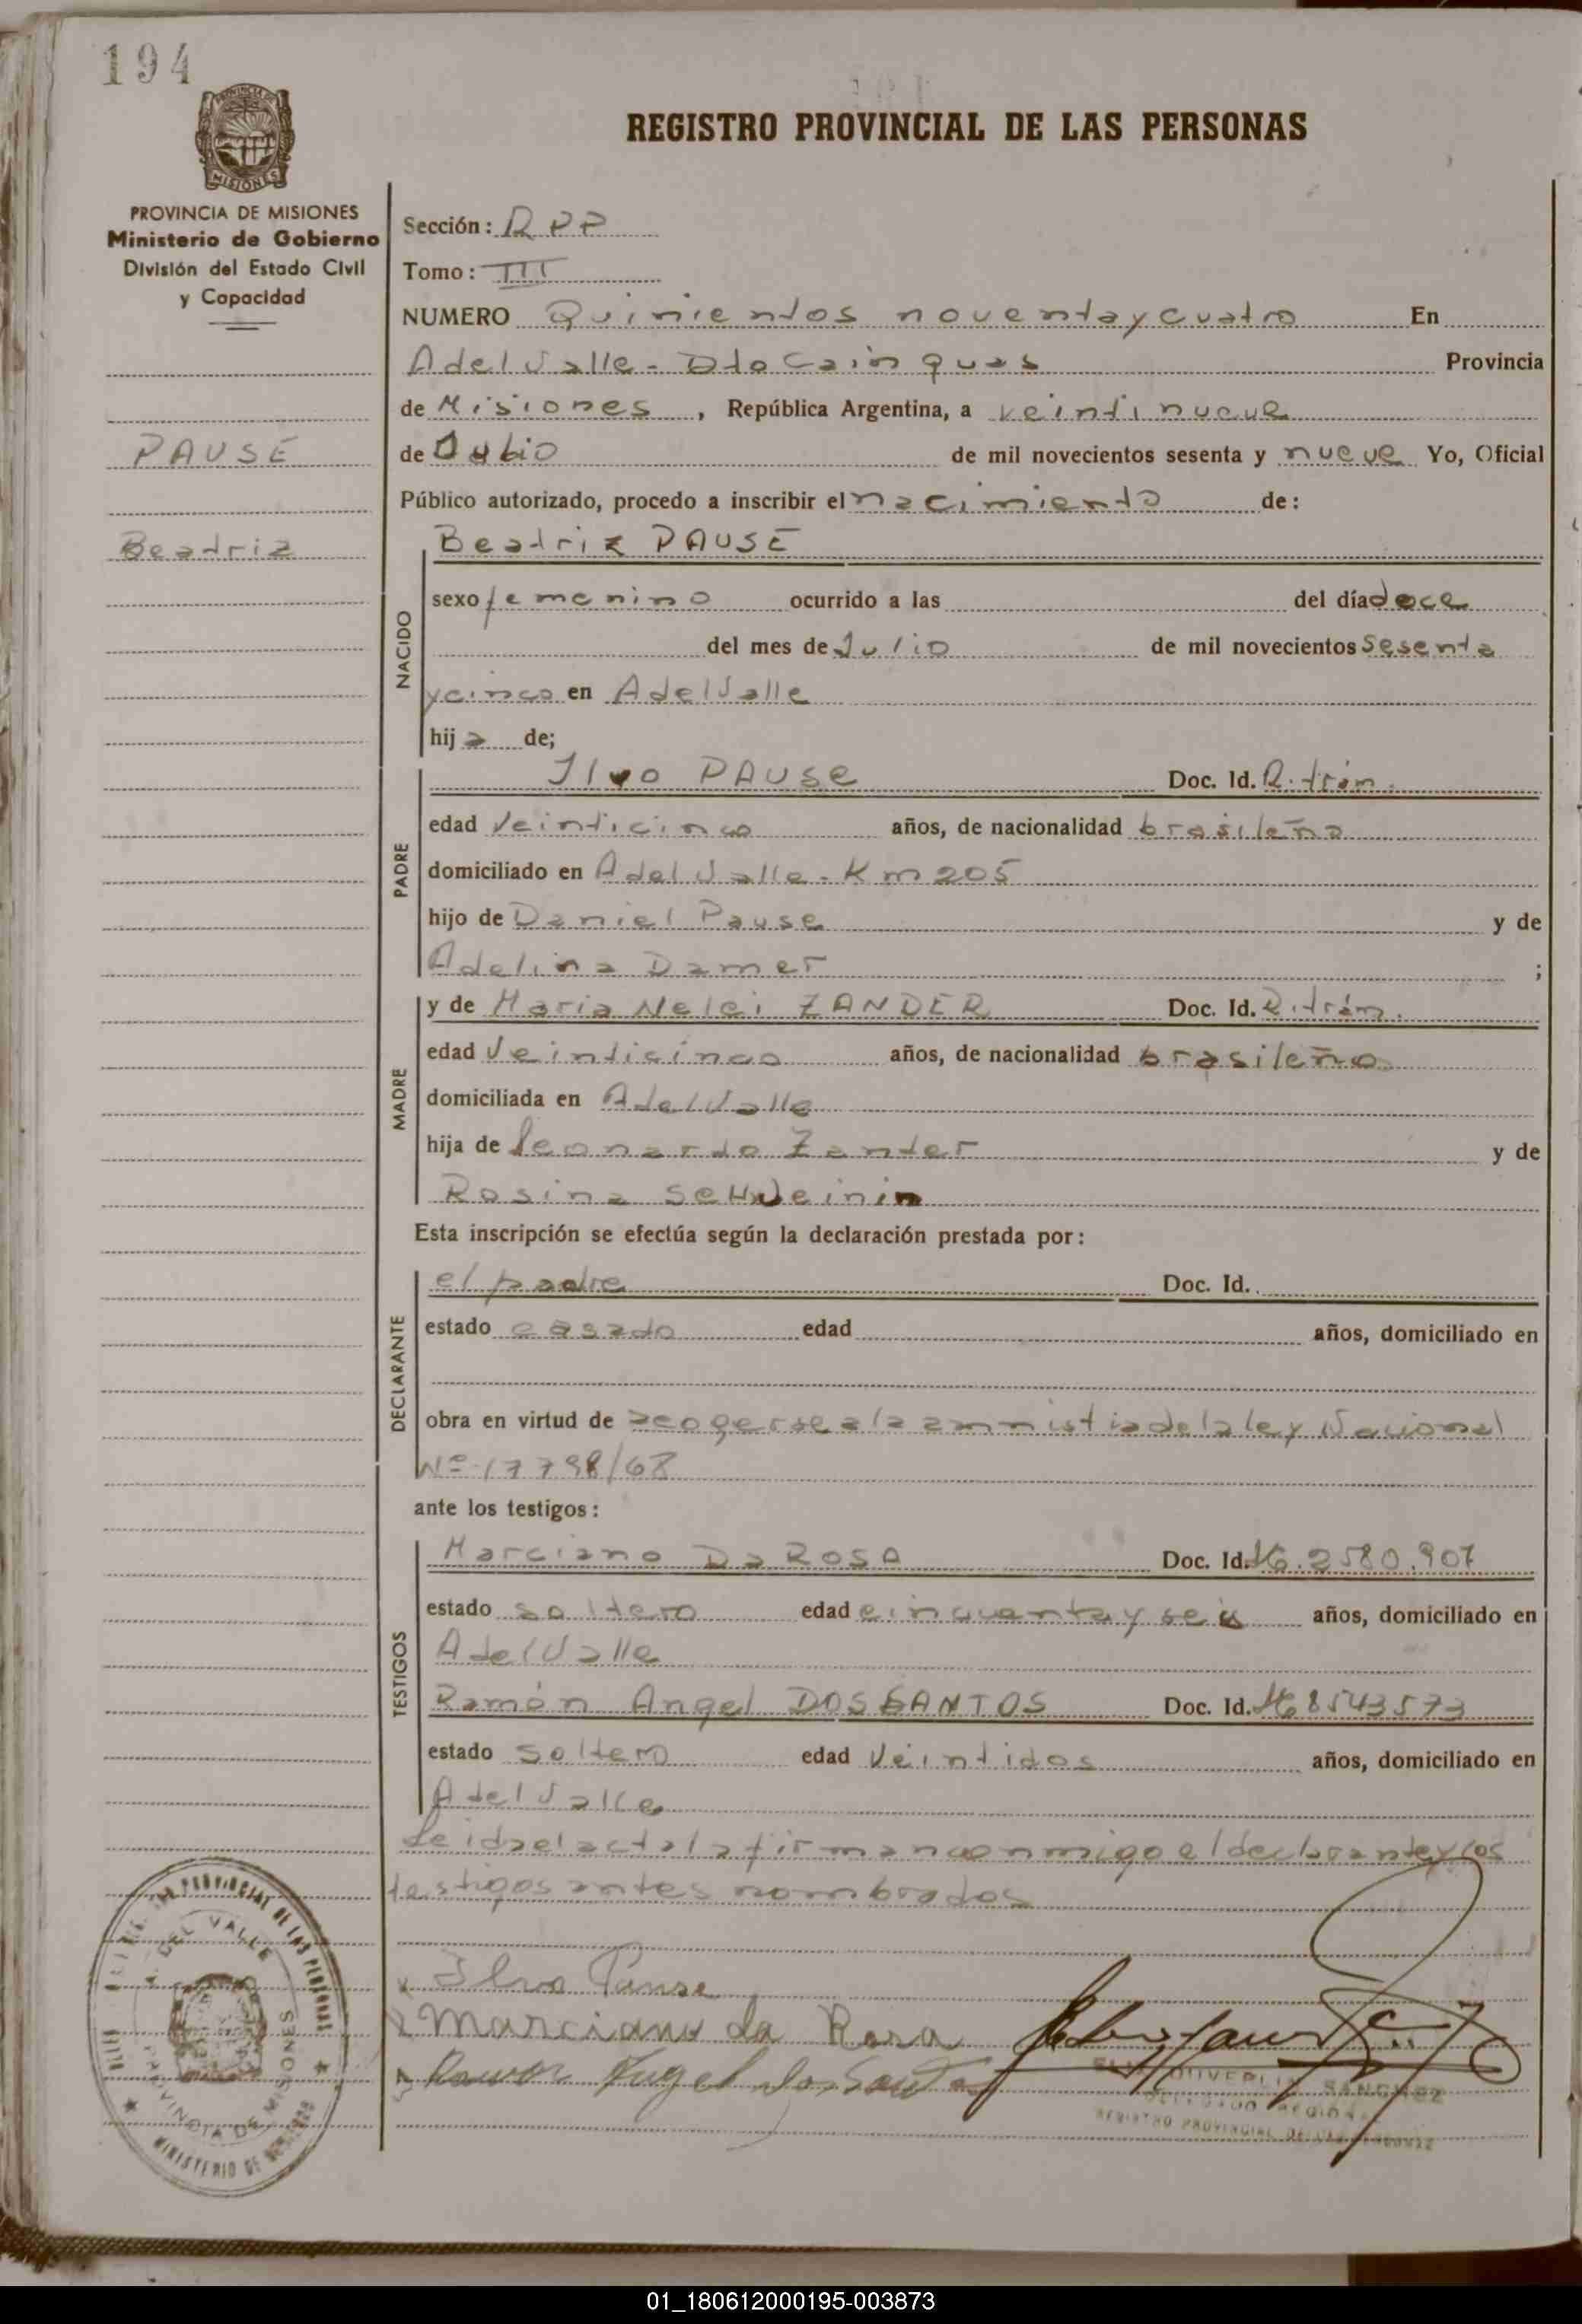 194
REGISTRO PROVINCIAL DE LAS PERSONAS
PROVINCIA DE MISIONES
Ministerio de Gobierno
División del Estado Civil
y Capacidad
PAUSE
Beatriz
Sección: RPP
Tomo: III
NUMERO Quinientos noventa y cuatro En
A del Valle - Dto Cainguas Provincia
de Misiones, República Argentina, a veintinueve
de Julio de mil novecientos sesenta y nueve Yo, Oficial
Público autorizado, procedo a inscribir el nacimiento de:
NACIDO
Beatriz PAUSE
sexo femenino ocurrido a las del día doce
del mes de Julio de mil novecientos sesenta
y cinco en A del Valle
hija de;
PADRE
Ilvo PAUSE Doc. Id. R. trám.
edad veinticinco años, de nacionalidad brasileña
domiciliado en A del Valle - Km 205
hijo de Daniel Pause y de
Adelina Damer ;
MADRE
y de Maria Nelci ZANDER Doc. Id. R. trám.
edad Veinticinco años, de nacionalidad brasileña
domiciliada en A del Valle
hija de Leonardo Zander y de
Rosina
Esta inscripción se efectúa según la declaración prestada por:
DECLARANTE
el padre Doc. Id.
estado casado edad años, domiciliado en
obra en virtud de acogerse a la amnistia de la ley Nacional
Nº 17798/68
ante los testigos:
TESTIGOS
Marciano Da ROSA Doc. Id. 2580.907
estado soltero edad cincuenta y seis años, domiciliado en
A del Valle
Ramón Angel DOS SANTOS Doc. Id. 8543573
estado soltero edad Veintidos años, domiciliado en
A del Valle
Leida el acta la firman conmigo el declarante y los
testigos antes nombrados
Ilvo Pause
Marciano da Rosa
Ramon Angel dos Santos
SANCHEZ
REGISTRO PROVINCIAL DE LAS PERSONAS
PROVINCIAL DE LAS PERSONAS
A. DEL VALLE
PROVINCIA DE MISIONES
MINISTERIO DE
01_180612000195-003873